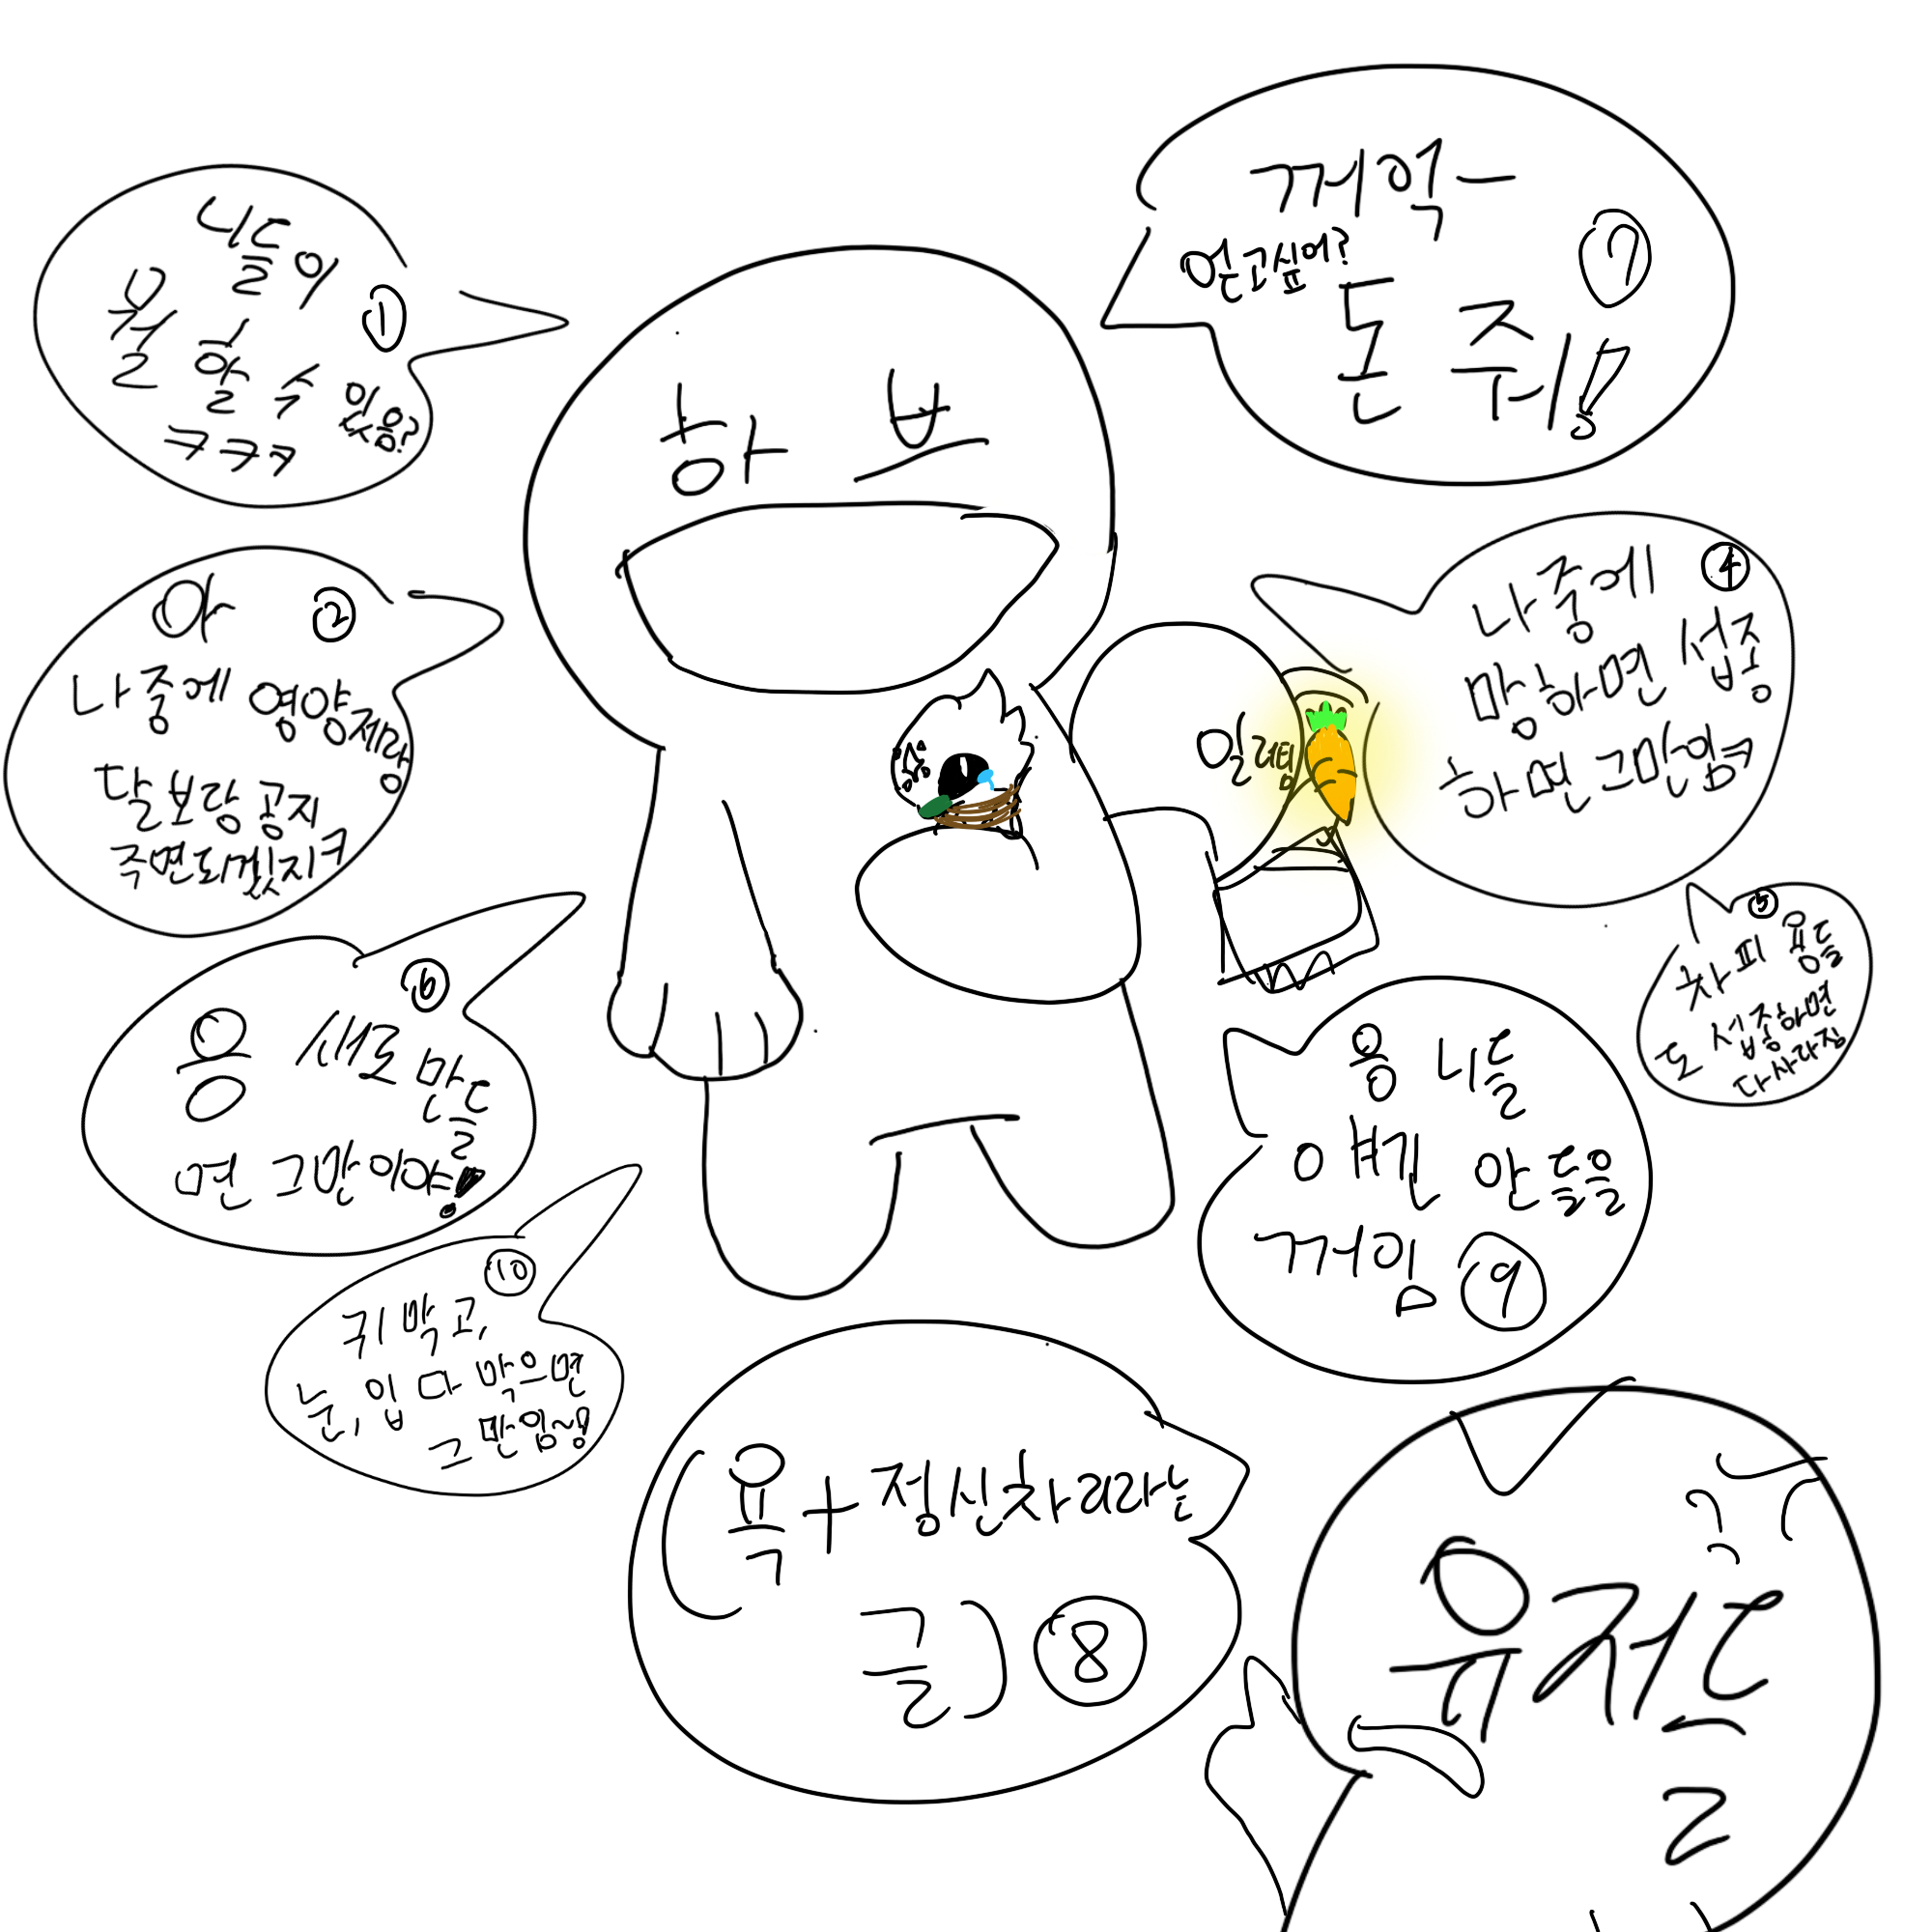 니들이
뭘 할 수 있음?
ㅋㅋㅋ
①
하 브
아 ②
나중에 영양제랑
달 보랑 공지
주면 되겠지ㅋ
나중에 ④
망하면 섭종
하면 그만임ㅋ
차피 용들 ⑤
도 섭종하면
다사라짐
⑥
용 새로 만들
면 그만이야!
꺼억ㅡ
얻고싶어?
돈 줘!
⑦
(욕+정신차리라는
글) ⑧
용 니들
의견 안 들을
꺼임 ⑨
⑩
귀 막고,
눈, 입 다 막으면
그만임~!
일러팀
유저들